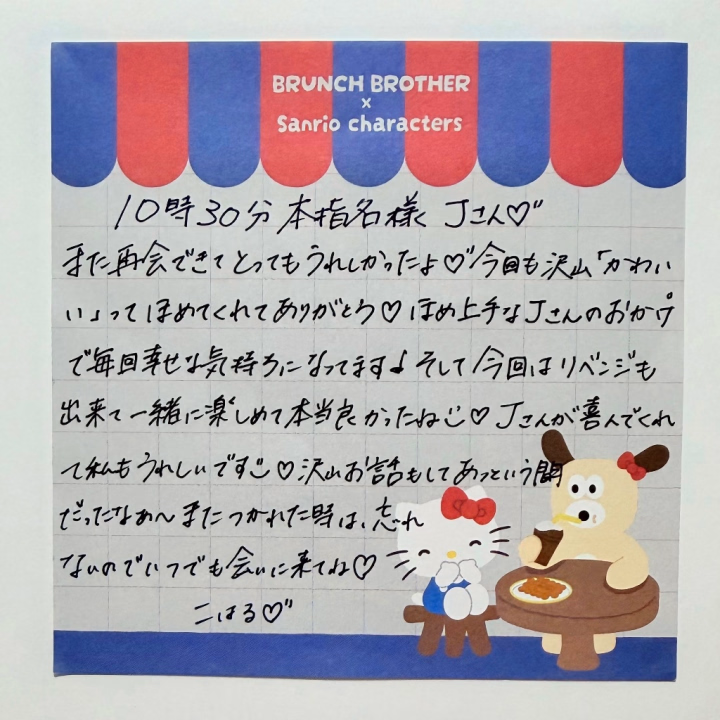 BRUNCH BROTHER
×
Sanrio characters
10時30分 本指名様 Jさん♡"
また再会できてとってもうれしかったよ♡"今回も沢山「かわい
い」ってほめてくれてありがとう♡ ほめ上手なJさんのおかげ
で毎回幸せな気持ちになってます♪そして今回はリベンジも
出来て一緒に楽しめて本当良かったね♡ Jさんが喜んでくれ
て私もうれしいです♡沢山お話もしてあっという間
だったなあ〜またつかれた時は、忘れ
ないのでいつでも会いに来てね♡
こはる♡"